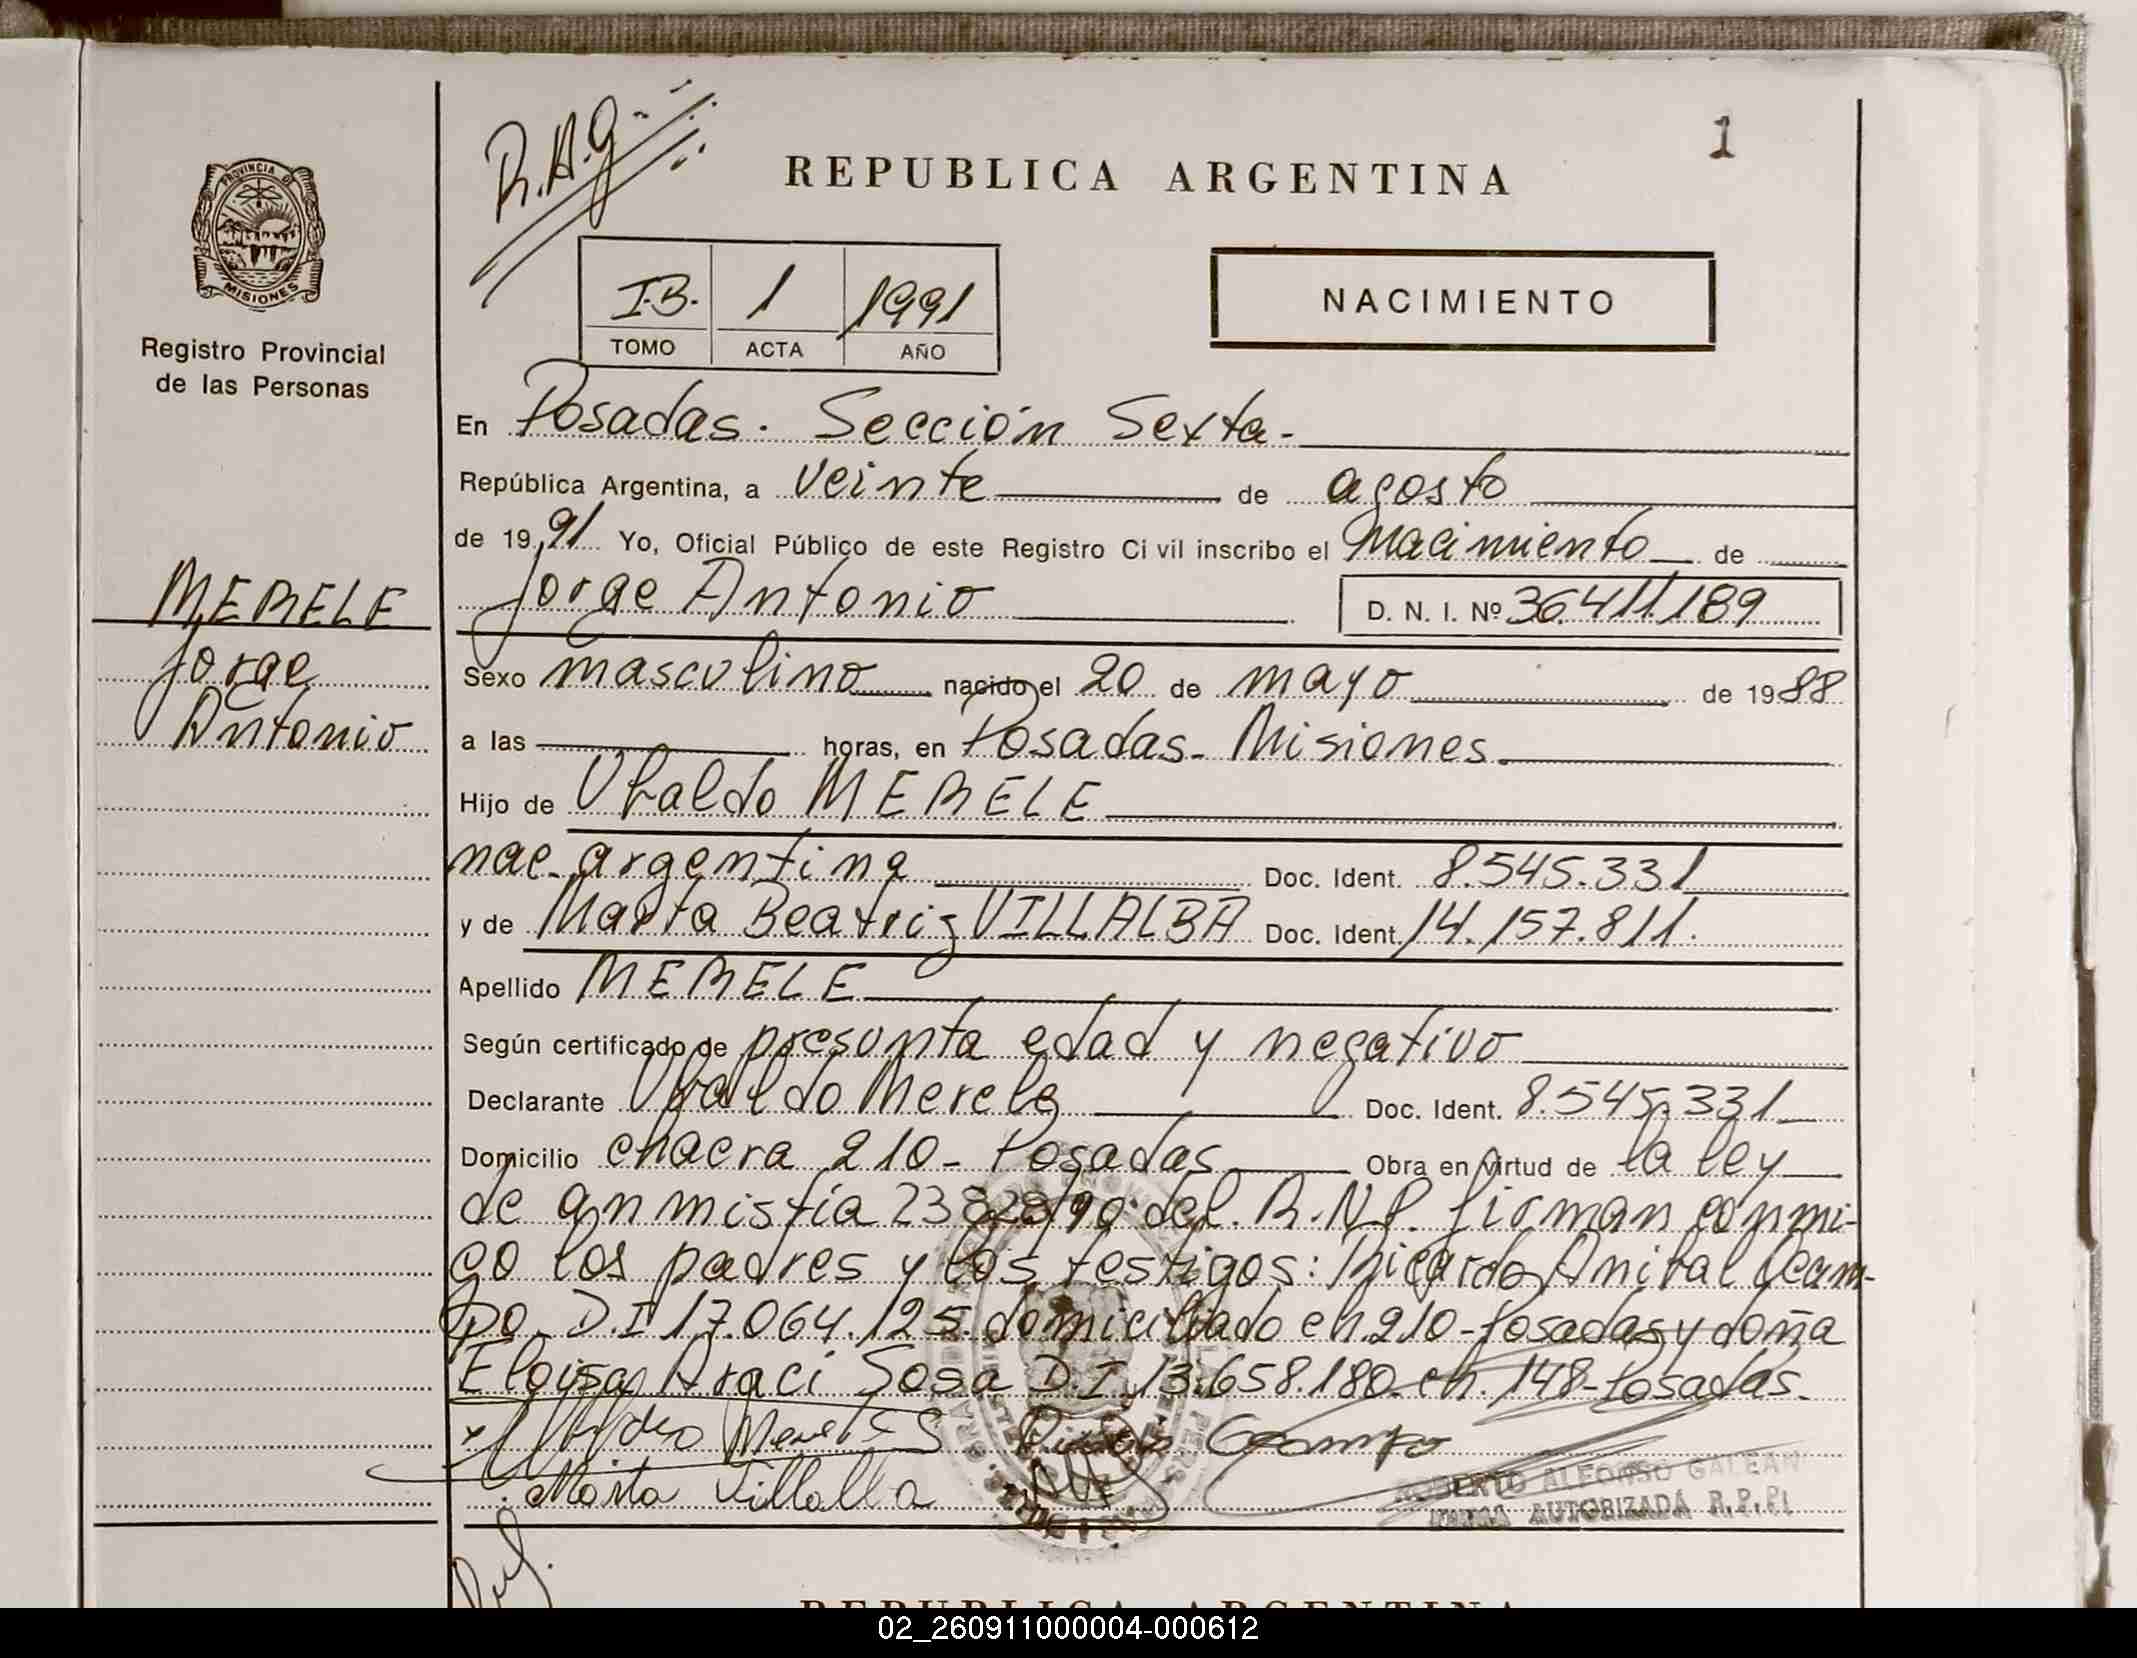 R.A.G.
1
REPUBLICA ARGENTINA
PROVINCIA DE
MISIONES
Registro Provincial
de las Personas
I.B. 1 1991
TOMO ACTA AÑO
NACIMIENTO
En Posadas. Sección Sexta.-
República Argentina, a veinte de agosto
de 1991 Yo, Oficial Público de este Registro Civil inscribo el Nacimiento de
Jorge Antonio D. N. I. Nº 36.411.189
MERELE
Jorge
Antonio
Sexo masculino nacido el 20 de mayo de 1988
a las horas, en Posadas- Misiones.
Hijo de Ubaldo MERELE
nac. argentina Doc. Ident. 8.545.331
y de Marta Beatriz VILLALBA Doc. Ident. 14.157.811.
Apellido MERELE
Según certificado de presunta edad y negativo
Declarante Ubaldo Merele Doc. Ident. 8.545.331
Domicilio chacra 210- Posadas Obra en virtud de la ley
de anmistía del R.N.P. firman conmi-
go los padres y los testigos: Ricardo Anibal Ocam-
po D.I 17.064.125 domiciliado ch.210-Posadas y doña
Eloisa Araci Sosa D.I. 13.658.180 ch. 148-Posadas.
Ocampo
Marta Villalba
ROBERTO ALFONSO GALEAN
FIRMA AUTORIZADA R.P.P.
REPUBLICA ARGENTINA
02_260911000004-000612